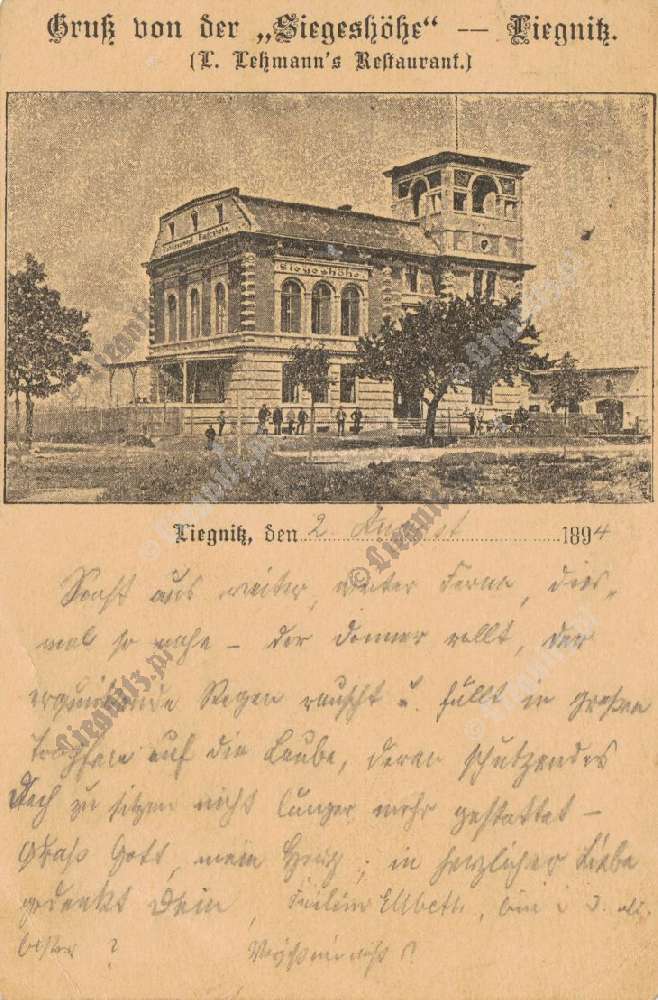 Gruß von der „Siegeshöhe“ — Liegnitz.
(L. Lehmann's Restaurant.)
Siegeshöhe
Liegnitz, den 2. August 1894
Sonst aus weiter, weiter Ferne, dies-
mal so nahe – der Donner rollt, der
erquickende Regen rauscht u. fällt in großen
Tropfen auf die Laube, deren schützendes
Dach zu sitzen nicht länger mehr gestattet –
Grüß Gott, mein Herz; in herzlicher Liebe
gedenkt Dein
© Liegnitz.pl